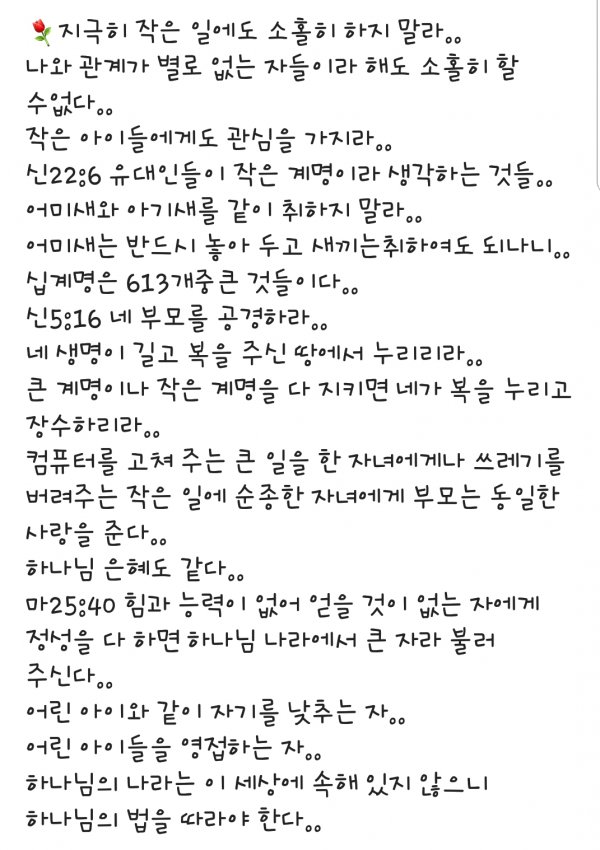 🌹지극히 작은 일에도 소홀히 하지 말라..
나와 관계가 별로 없는 자들이라 해도 소홀히 할
수없다..
작은 아이들에게도 관심을 가지라..
신22:6 유대인들이 작은 계명이라 생각하는 것들..
어미새와 아기새를 같이 취하지 말라..
어미새는 반드시 놓아 두고 새끼는취하여도 되나니..
십계명은 613개중 큰 것들이다..
신5:16 네 부모를 공경하라..
네 생명이 길고 복을 주신 땅에서 누리리라..
큰 계명이나 작은 계명을 다 지키면 네가 복을 누리고
장수하리라..
컴퓨터를 고쳐 주는 큰 일을 한 자녀에게나 쓰레기를
버려주는 작은 일에 순종한 자녀에게 부모는 동일한
사랑을 준다..
하나님 은혜도 같다..
마25:40 힘과 능력이 없어 얻을 것이 없는 자에게
정성을 다 하면 하나님 나라에서 큰 자라 불러
주신다..
어린 아이와 같이 자기를 낮추는 자..
어린 아이들을 영접하는 자..
하나님의 나라는 이 세상에 속해 있지 않으니
하나님의 법을 따라야 한다..